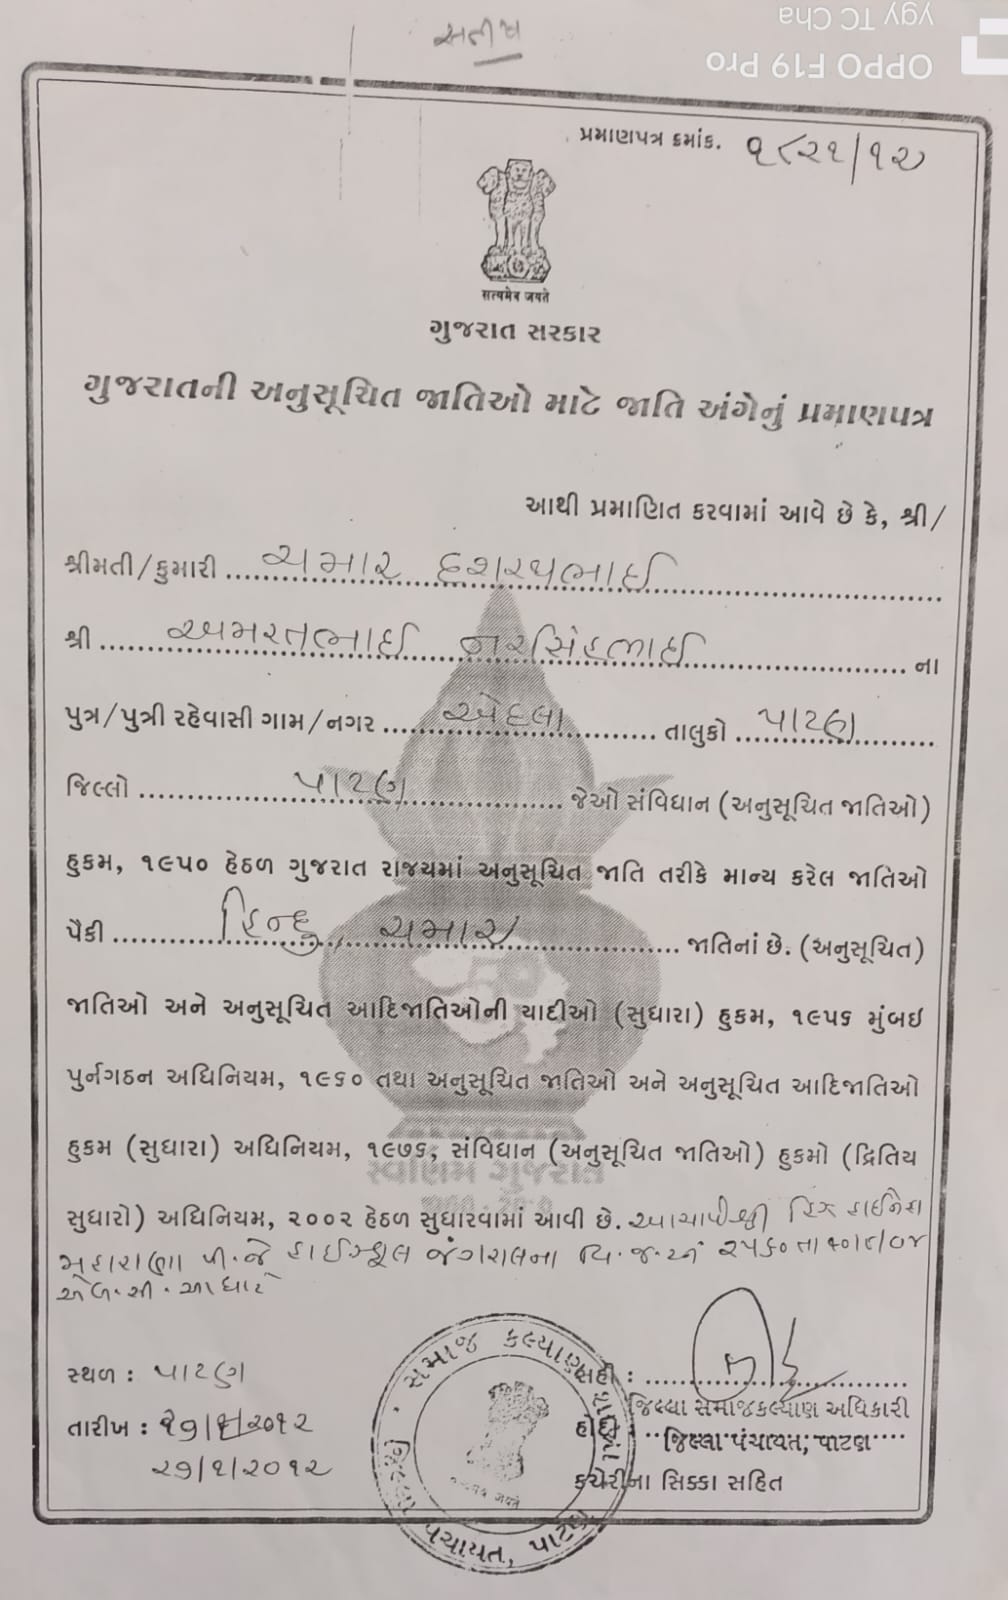 સતીષ
OPPO F19 Pro
ygy TC Cha
પ્રમાણપત્ર ક્રમાંક. ૧૮૨૧/૧૨
सत्यमेव जयते
ગુજરાત સરકાર
ગુજરાતની અનુસૂચિત જાતિઓ માટે જાતિ અંગેનું પ્રમાણપત્ર
આથી પ્રમાણિત કરવામાં આવે છે કે, શ્રી/
શ્રીમતી/કુમારી ચમાર દશરથભાઈ
શ્રી અમરતભાઈ નરસિંહભાઈ ના
પુત્ર/પુત્રી રહેવાસી ગામ/નગર એદલા તાલુકો પાટણ
જિલ્લો પાટણ જેઓ સંવિધાન (અનુસૂચિત જાતિઓ)
હુકમ, ૧૯૫૦ હેઠળ ગુજરાત રાજ્યમાં અનુસૂચિત જાતિ તરીકે માન્ય કરેલ જાતિઓ
પૈકી હિન્દુ ચમાર જાતિનાં છે. (અનુસૂચિત)
જાતિઓ અને અનુસૂચિત આદિજાતિઓની યાદીઓ (સુધારા) હુકમ, ૧૯૫૬ મુંબઇ
પુર્નગઠન અધિનિયમ, ૧૯૬૦ તથા અનુસૂચિત જાતિઓ અને અનુસૂચિત આદિજાતિઓ
હુકમ (સુધારા) અધિનિયમ, ૧૯૭૬, સંવિધાન (અનુસૂચિત જાતિઓ) હુકમો (દ્રિતિય
સ્વર્ણિમ ગુજરાત
સુધારો) અધિનિયમ, ૨૦૦૨ હેઠળ સુધારવામાં આવી છે. આચાર્યશ્રી હિઝ હાઈનેશ
મહારાણા પી.જે હાઈસ્કૂલ જંગરાલના ૨૫૬૦ તા
એલ.સી.આધારે
સ્થળ : પાટણ
તારીખ : ૨૭/૧/૨૦૧૨
૨૭/૧/૨૦૧૨
સમાજ કલ્યાણ
જિલ્લા પંચાયત, પાટણ
સહી :
જિલ્લા સમાજકલ્યાણ અધિકારી
હોદ્દો : જિલ્લા પંચાયત, પાટણ
કચેરીના સિક્કા સહિત